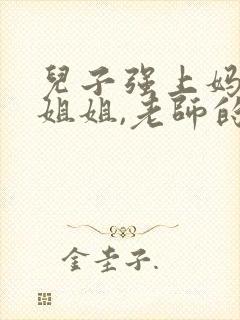 兒子强上妈
姐姐,老師的
金圭子.